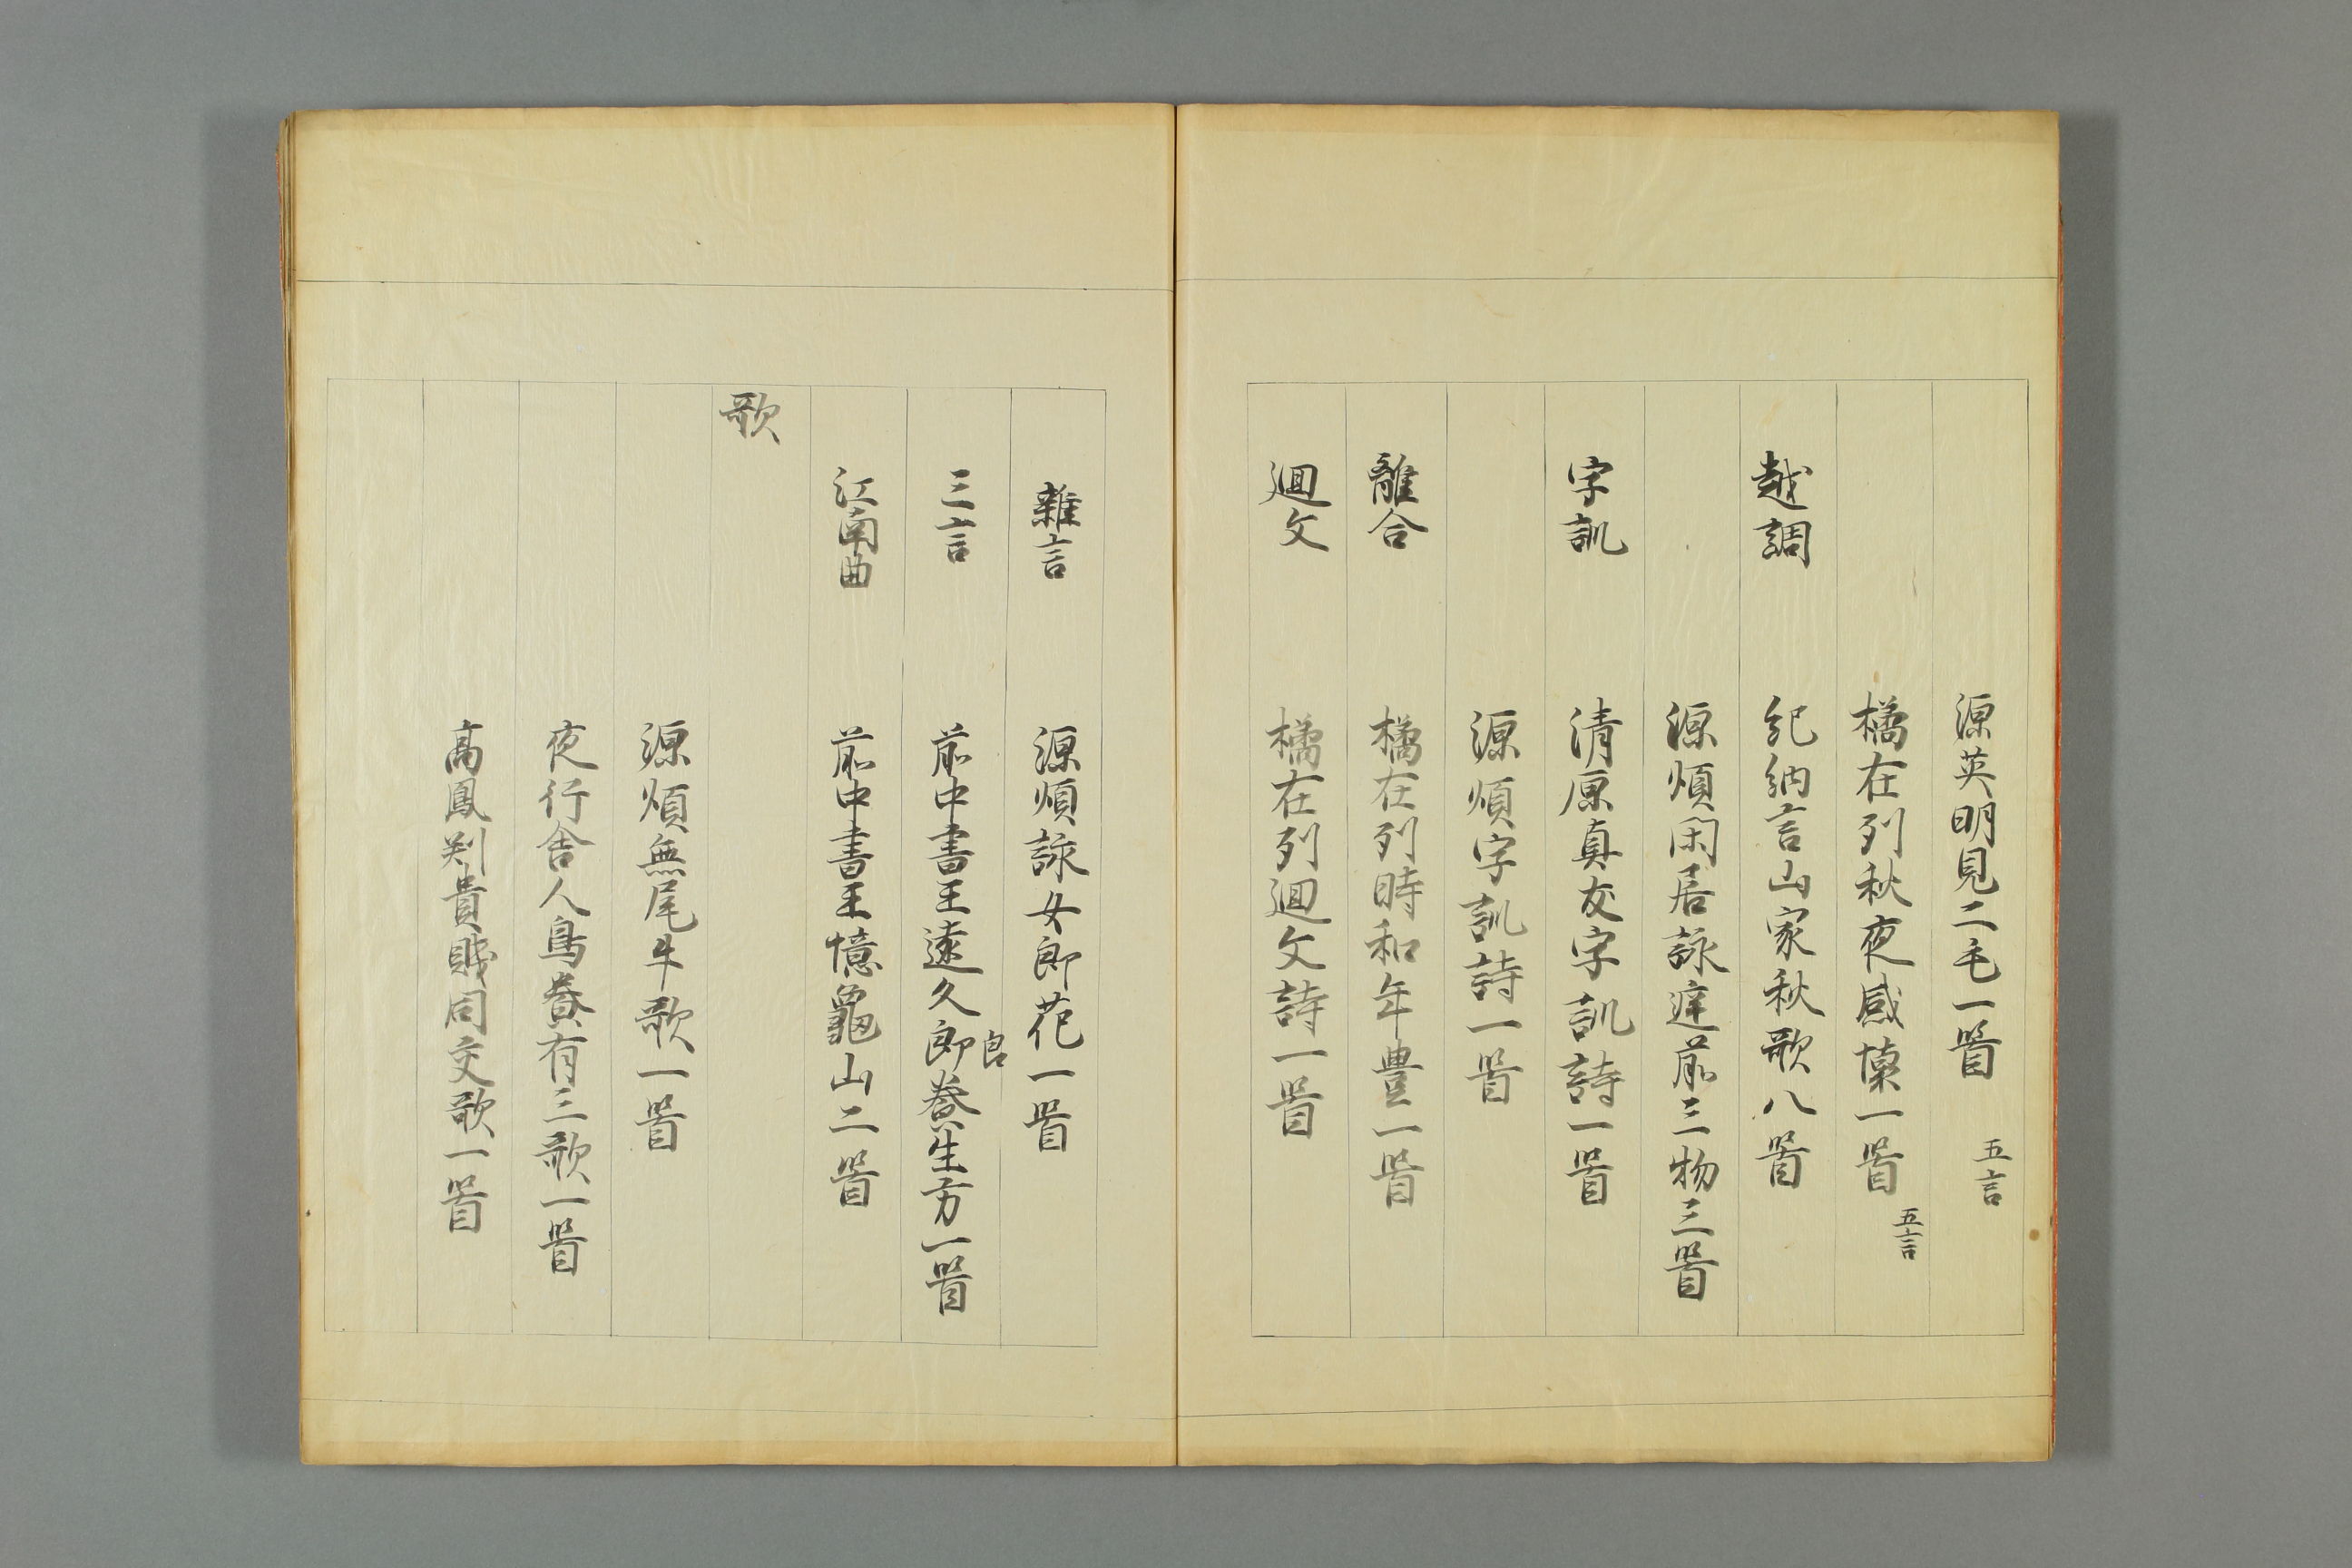 源英明見二毛一首 五言
橘在列秋夜感懷一首 五言
越調 紀納言山家秋歌八首
源順閑居詠庭前三物三首
字訓 清原真友字訓詩一首
源順字訓詩一首
離合 橘在列時和年豊一首
廻文 橘在列廻文詩一首
雜言 源順詠女郎花一首
三言 前中書王遠久郎養生方一首
良
江南曲 前中書王憶龜山二首
歌
源順無尾牛歌一首
夜行舍人鳥養有三歌一首
高鳳刺貴賤同交歌一首